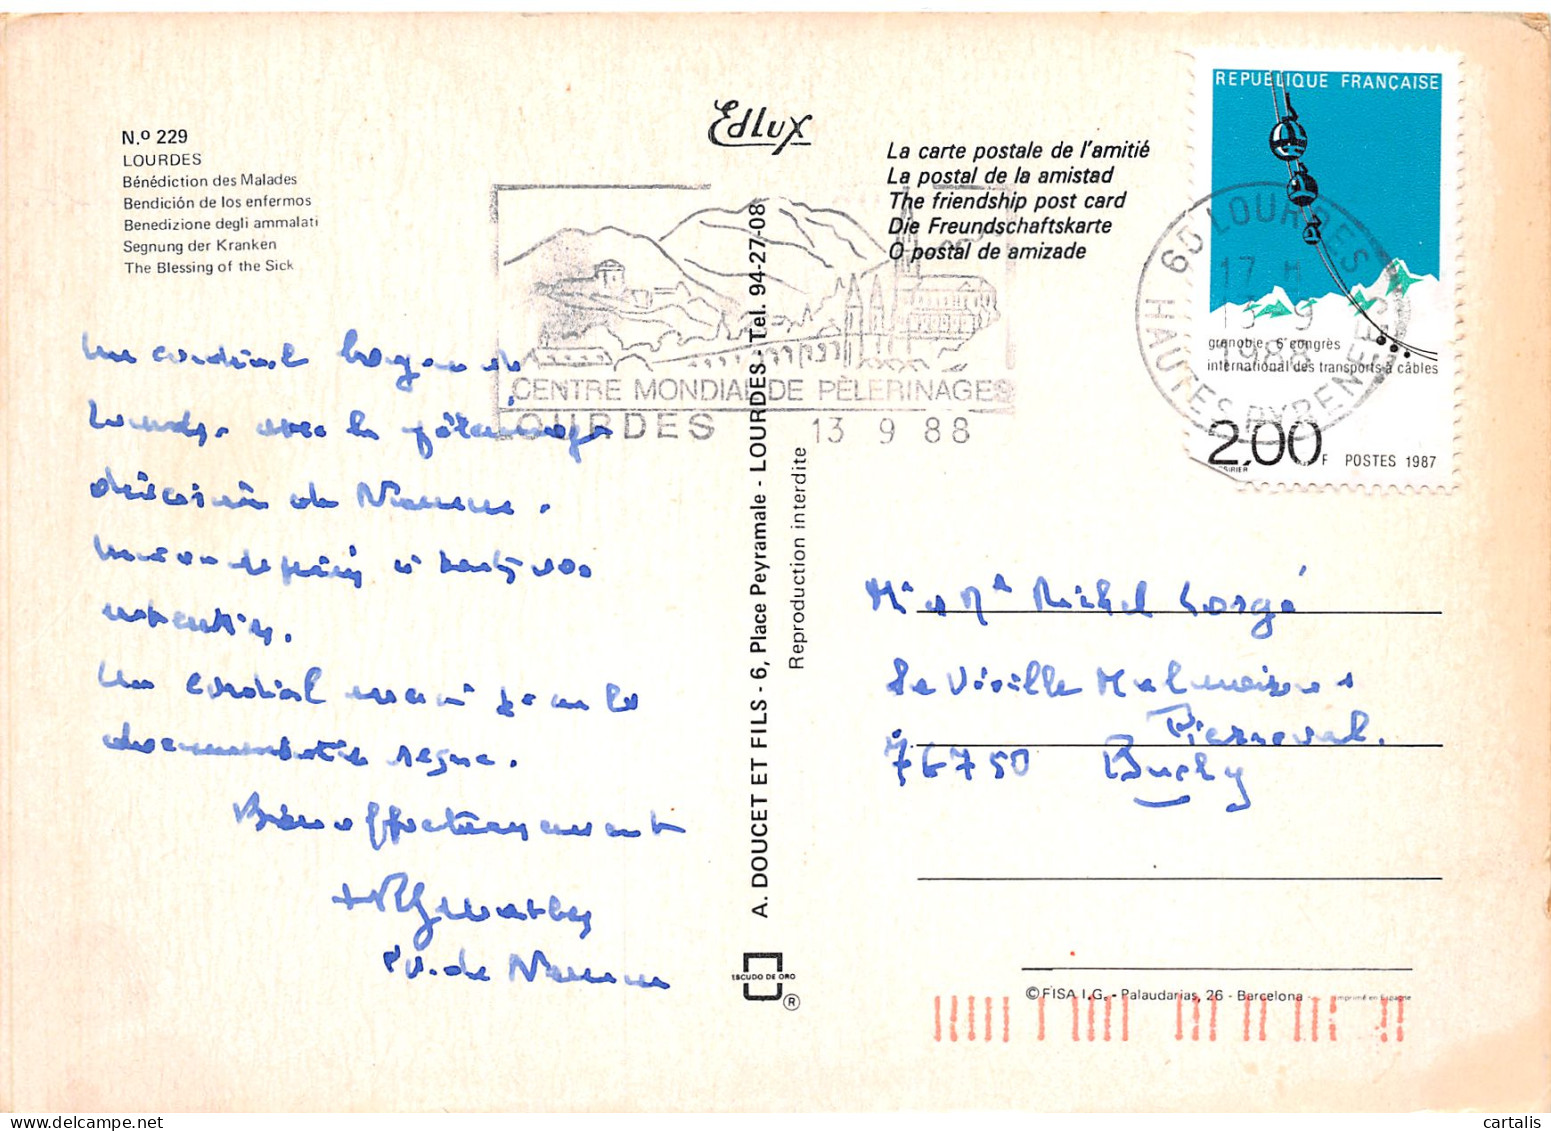 N.º 229
LOURDES
Bénédiction des Malades
Bendición de los enfermos
Benedizione degli ammalati
Segnung der Kranken
The Blessing of the Sick
Edlux
La carte postale de l'amitié
La postal de la amistad
The friendship post card
Die Freundschaftskarte
O postal de amizade
REPUBLIQUE FRANÇAISE
grenoble, 6e congrès
international des transports à câbles
2,00 F POSTES 1987
65 LOURDES
17 H
13 9
1988
HAUTES PYRENEES
CENTRE MONDIAL DE PÈLERINAGES
LOURDES 13 9 88
un cordial
Lourdes avec le pèlerinage
diocésain de
un cordial merci pour le
documentation
Bien affectueusement
A. DOUCET ET FILS - 6, Place Peyramale - LOURDES - Tel. 94-27-08
Reproduction interdite
ESCUDO DE ORO
®
Mr et Me Michel Lorgé
La Vieille
Pierreval.
76750 Buchy
© FISA I.G. - Palaudarias, 26 - Barcelona
Imprimé en Espagne
cartalis